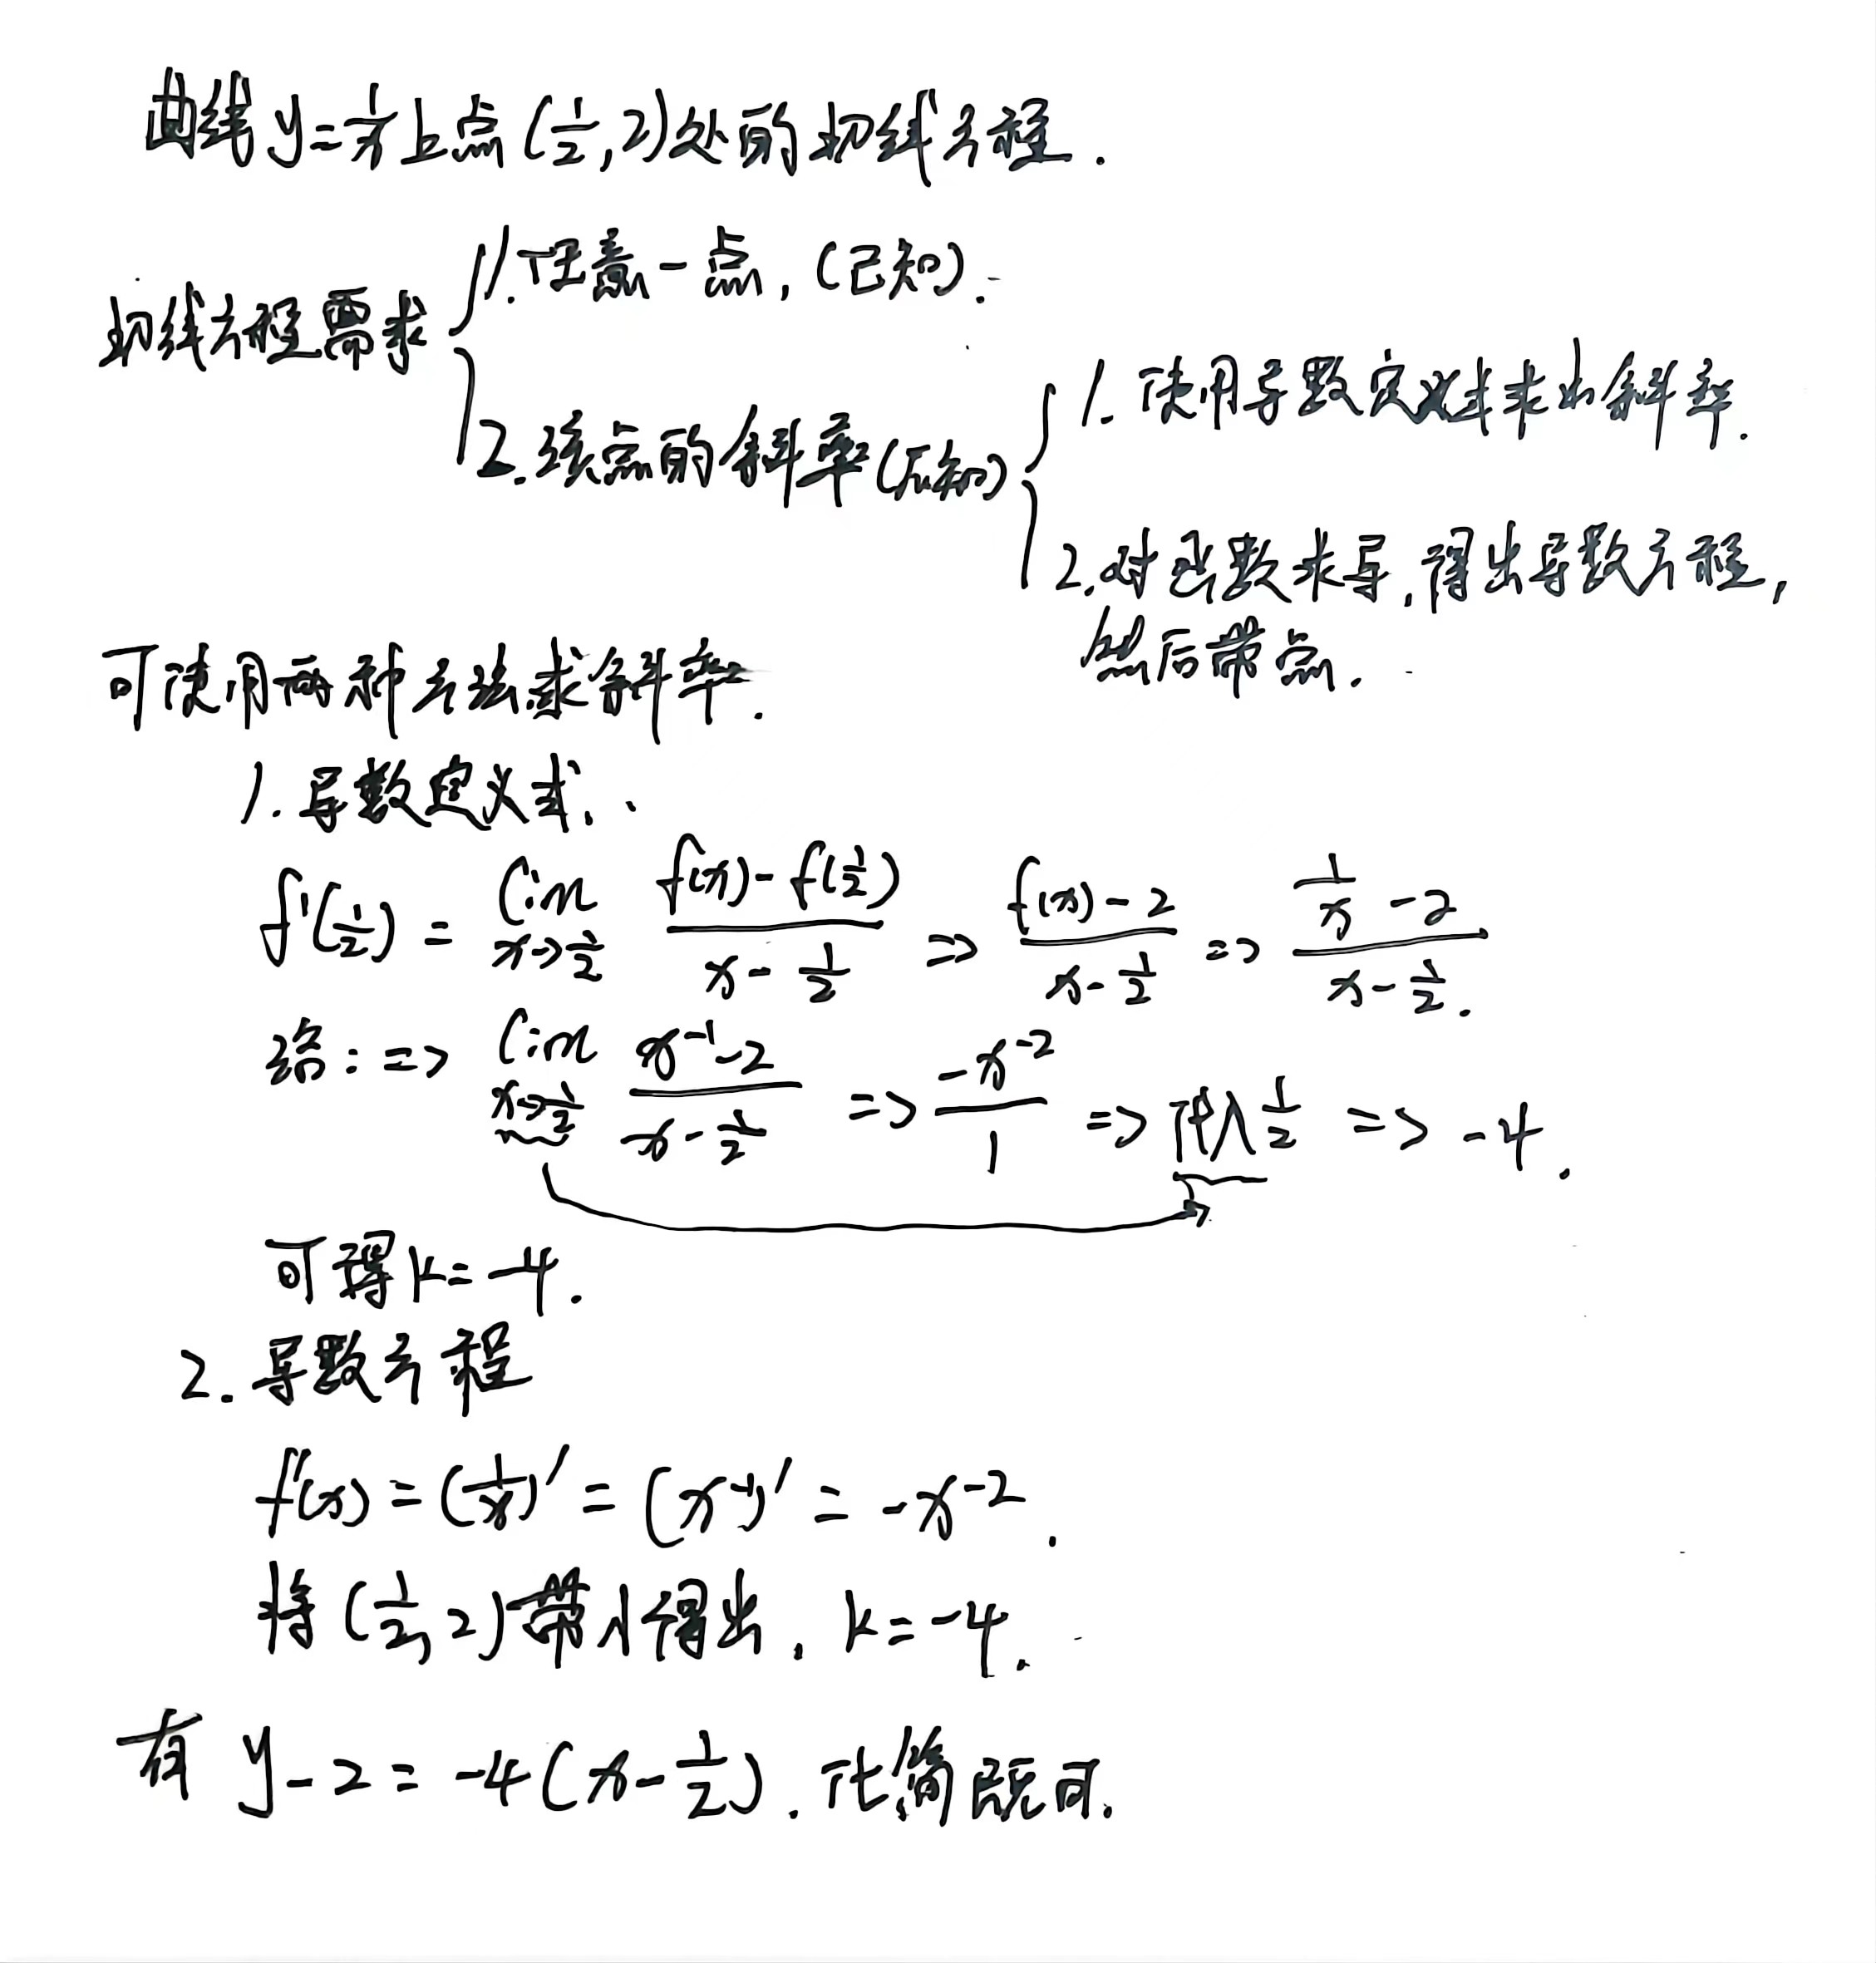 曲线 y=1/x 上点(1/2,2)处的切线方程.
切线方程需求
1.任意一点,(已知).
2.该点的斜率(不知)
1.使用导数定义式求出斜率.
2.对函数求导,得出导数方程,
然后带点.
可使用两种方法求斜率.
1.导数定义式.
f'(1/2) = lim x→1/2 (f(x)-f(1/2))/(x-1/2) => (f(x)-2)/(x-1/2) => (1/x -2)/(x-1/2).
: => lim x→1/2 (x⁻¹-2)/(x-1/2) => -x⁻²/1 => 代入 1/2 => -4.
可得k=-4.
2.导数方程
f'(x)=(1/x)'=(x⁻¹)'=-x⁻².
将(1/2,2)带入得出.k=-4.
有 y-2=-4(x-1/2).化简既可.